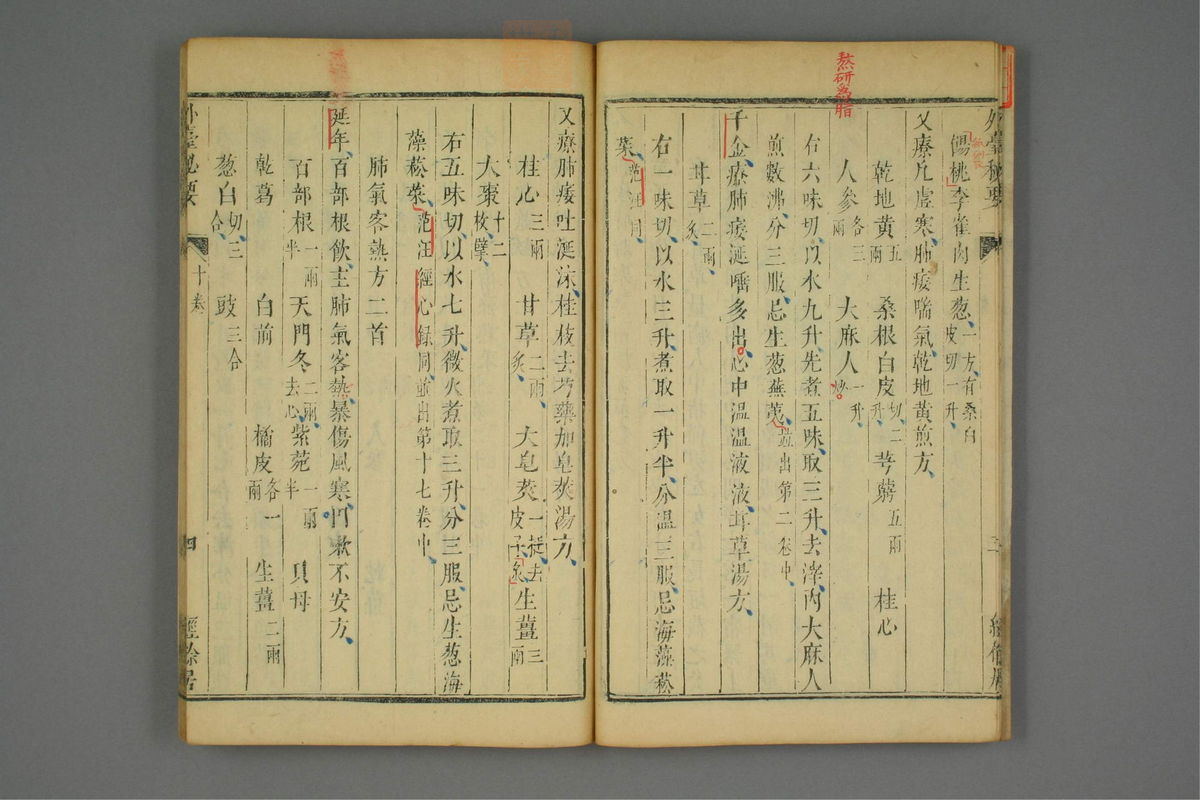 熬研為脂
外臺秘要
三
餳桃李雀肉生葱一方有桑白皮切一升
又療欬虛寒肺痿喘氣乾地黄煎方
乾地黄五兩 桑根白皮切二升 芎藭五兩 桂心
人參各三兩 大麻人一升
右六味切以水九升先煮五味取三升去滓內大麻人
煎數沸分三服忌生葱蕪荑並出第二卷中
千金療肺痿涎唾多出心中温温液液甘草湯方
甘草二兩炙
右一味切以水三升煮取一升半分温三服忌海藻菘
菜范汪同
又療肺痿吐涎沫桂枝去芍藥加皂莢湯方
桂心三兩 甘草二兩炙 大皂莢一挺去皮子炙 生薑三兩
大棗十二枚擘
右五味切以水七升微火煮取三升分三服忌生葱海
藻菘菜范汪經心録同並出第十七卷中
肺氣客熱方二首
延年百部根飲主肺氣客熱暴傷風寒欬嗽不安方
百部根一兩半 天門冬二兩去心 紫菀一兩半 貝母
乾葛 白前 橘皮各一兩 生薑二兩
葱白切三合 豉三合
外臺秘要
十卷
四
經餘居